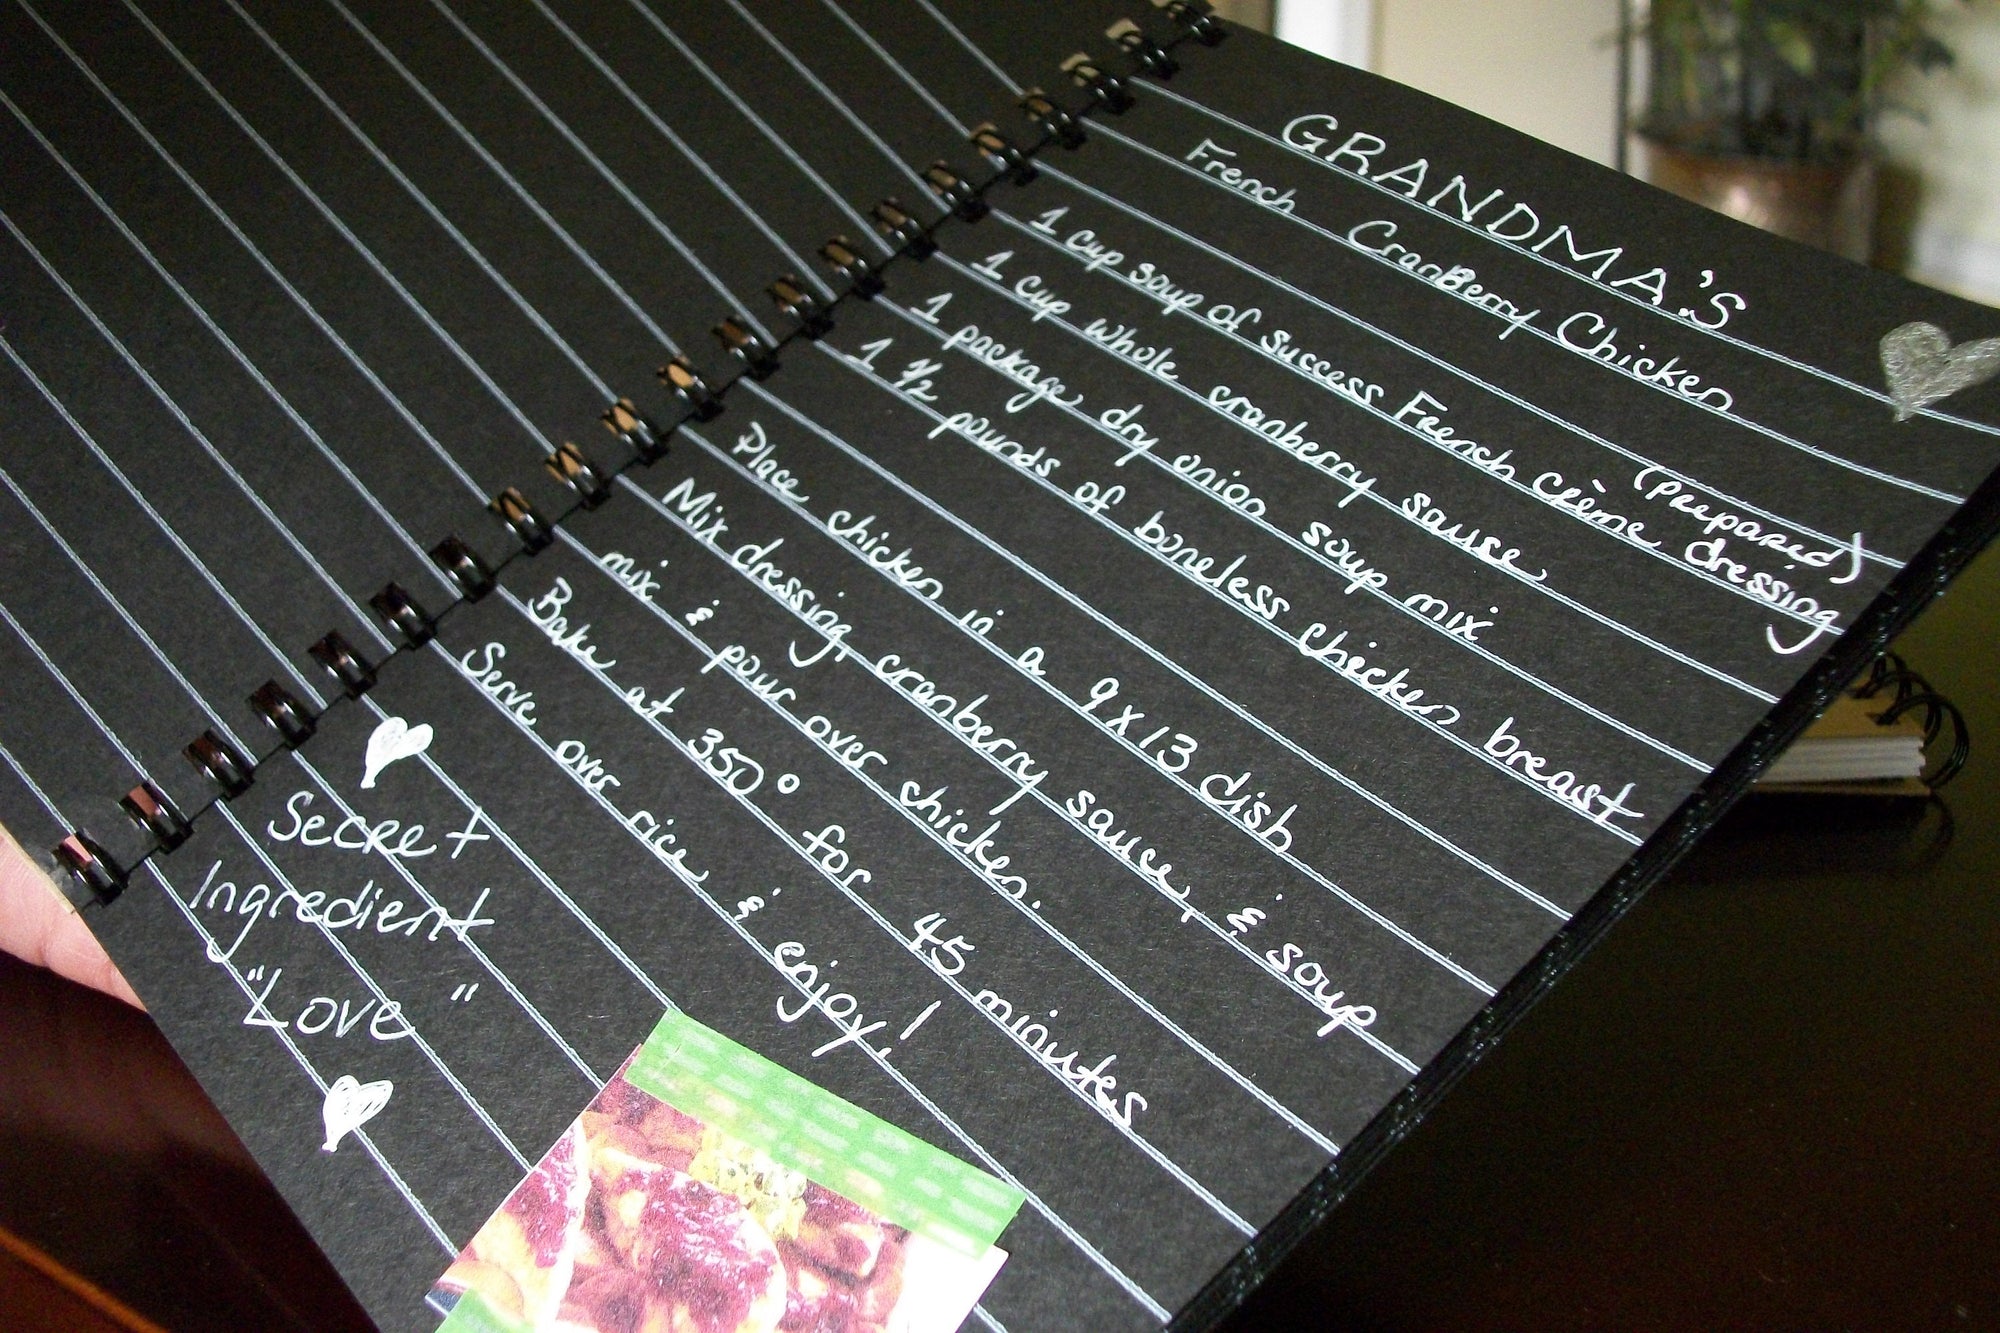 GRANDMA'S
French CranBerry Chicken
(prepared)
1 cup soup of success French crème dressing
1 cup whole cranberry sause
1 package dry onion soup mix
1 1/2 pounds of boneless chicken breast
Place chicken in a 9x13 dish
Mix dressing, cranberry sauce, & soup
mix & pour over chicken.
Bake at 350° for 45 minutes
Serve over rice & enjoy!
Secret
Ingredient
"Love"